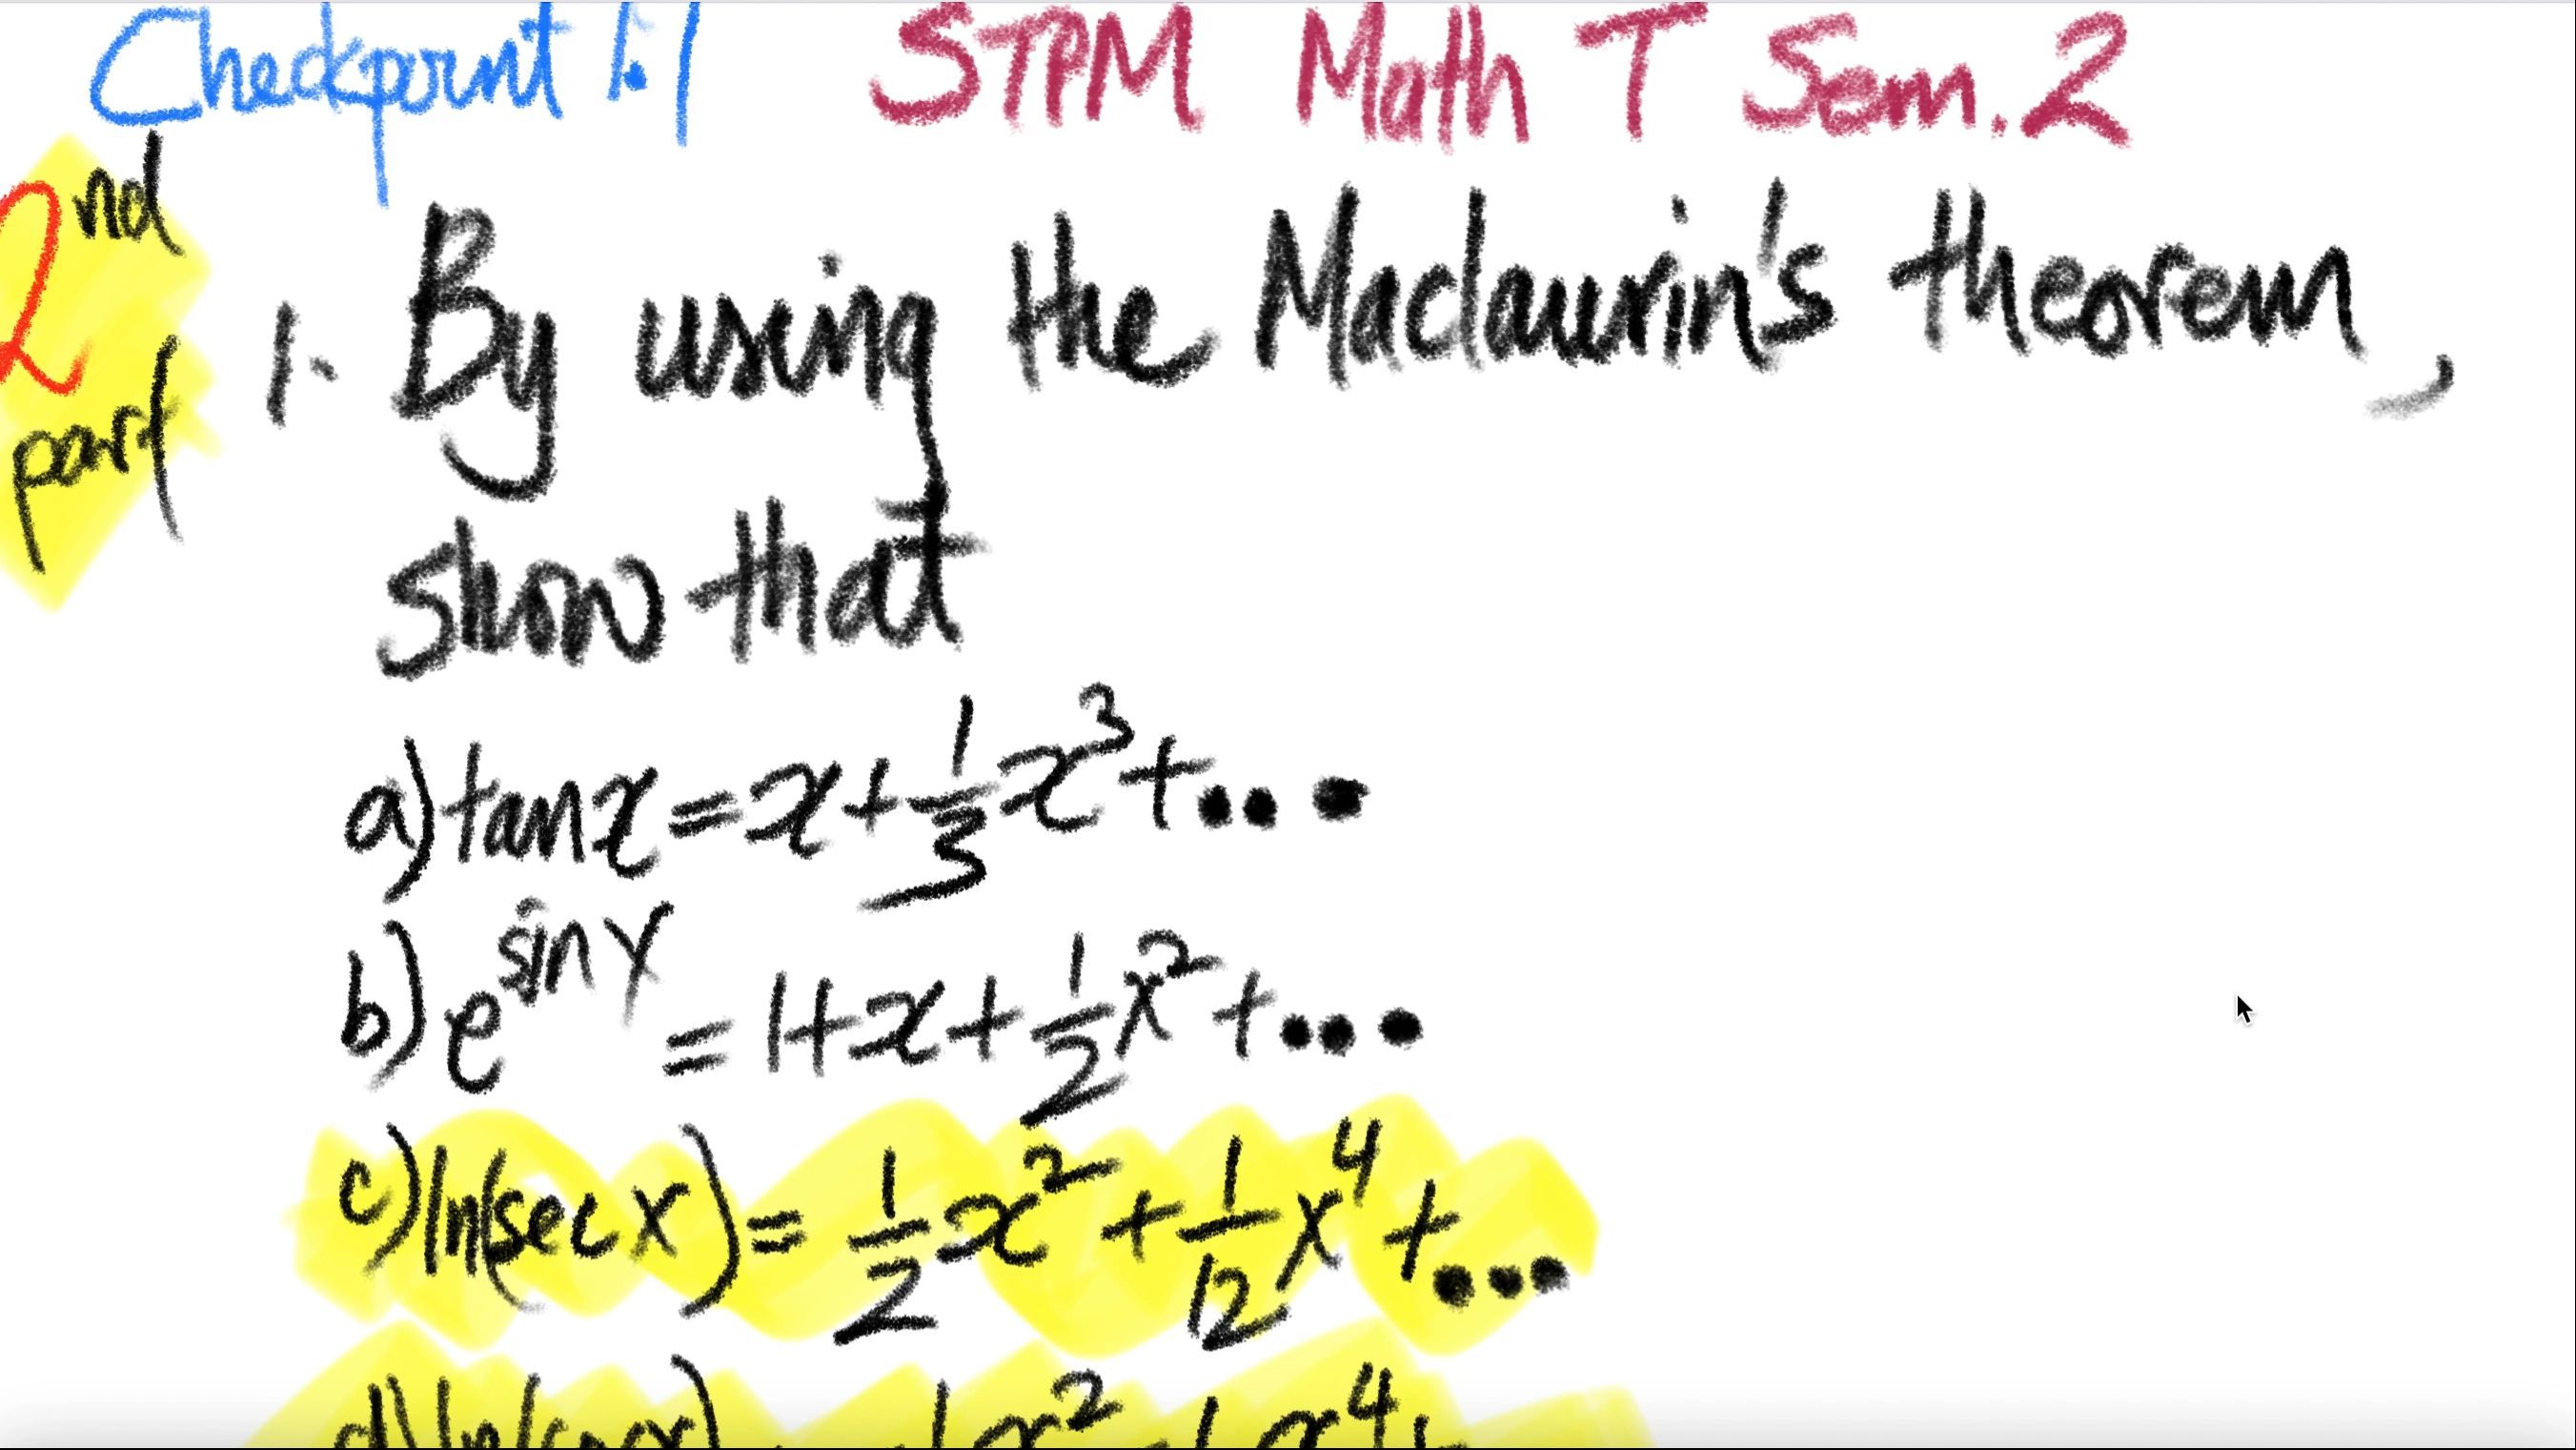 Checkpoint 1.1 STPM Math T Sem. 2
2nd
part
1. By using the Maclaurin's theorem,
show that
a) tan x = x + 1/3 x³ + ...
b) e^(sin x) = 1 + x + 1/2 x² + ...
c) ln(sec x) = 1/2 x² + 1/12 x⁴ + ...